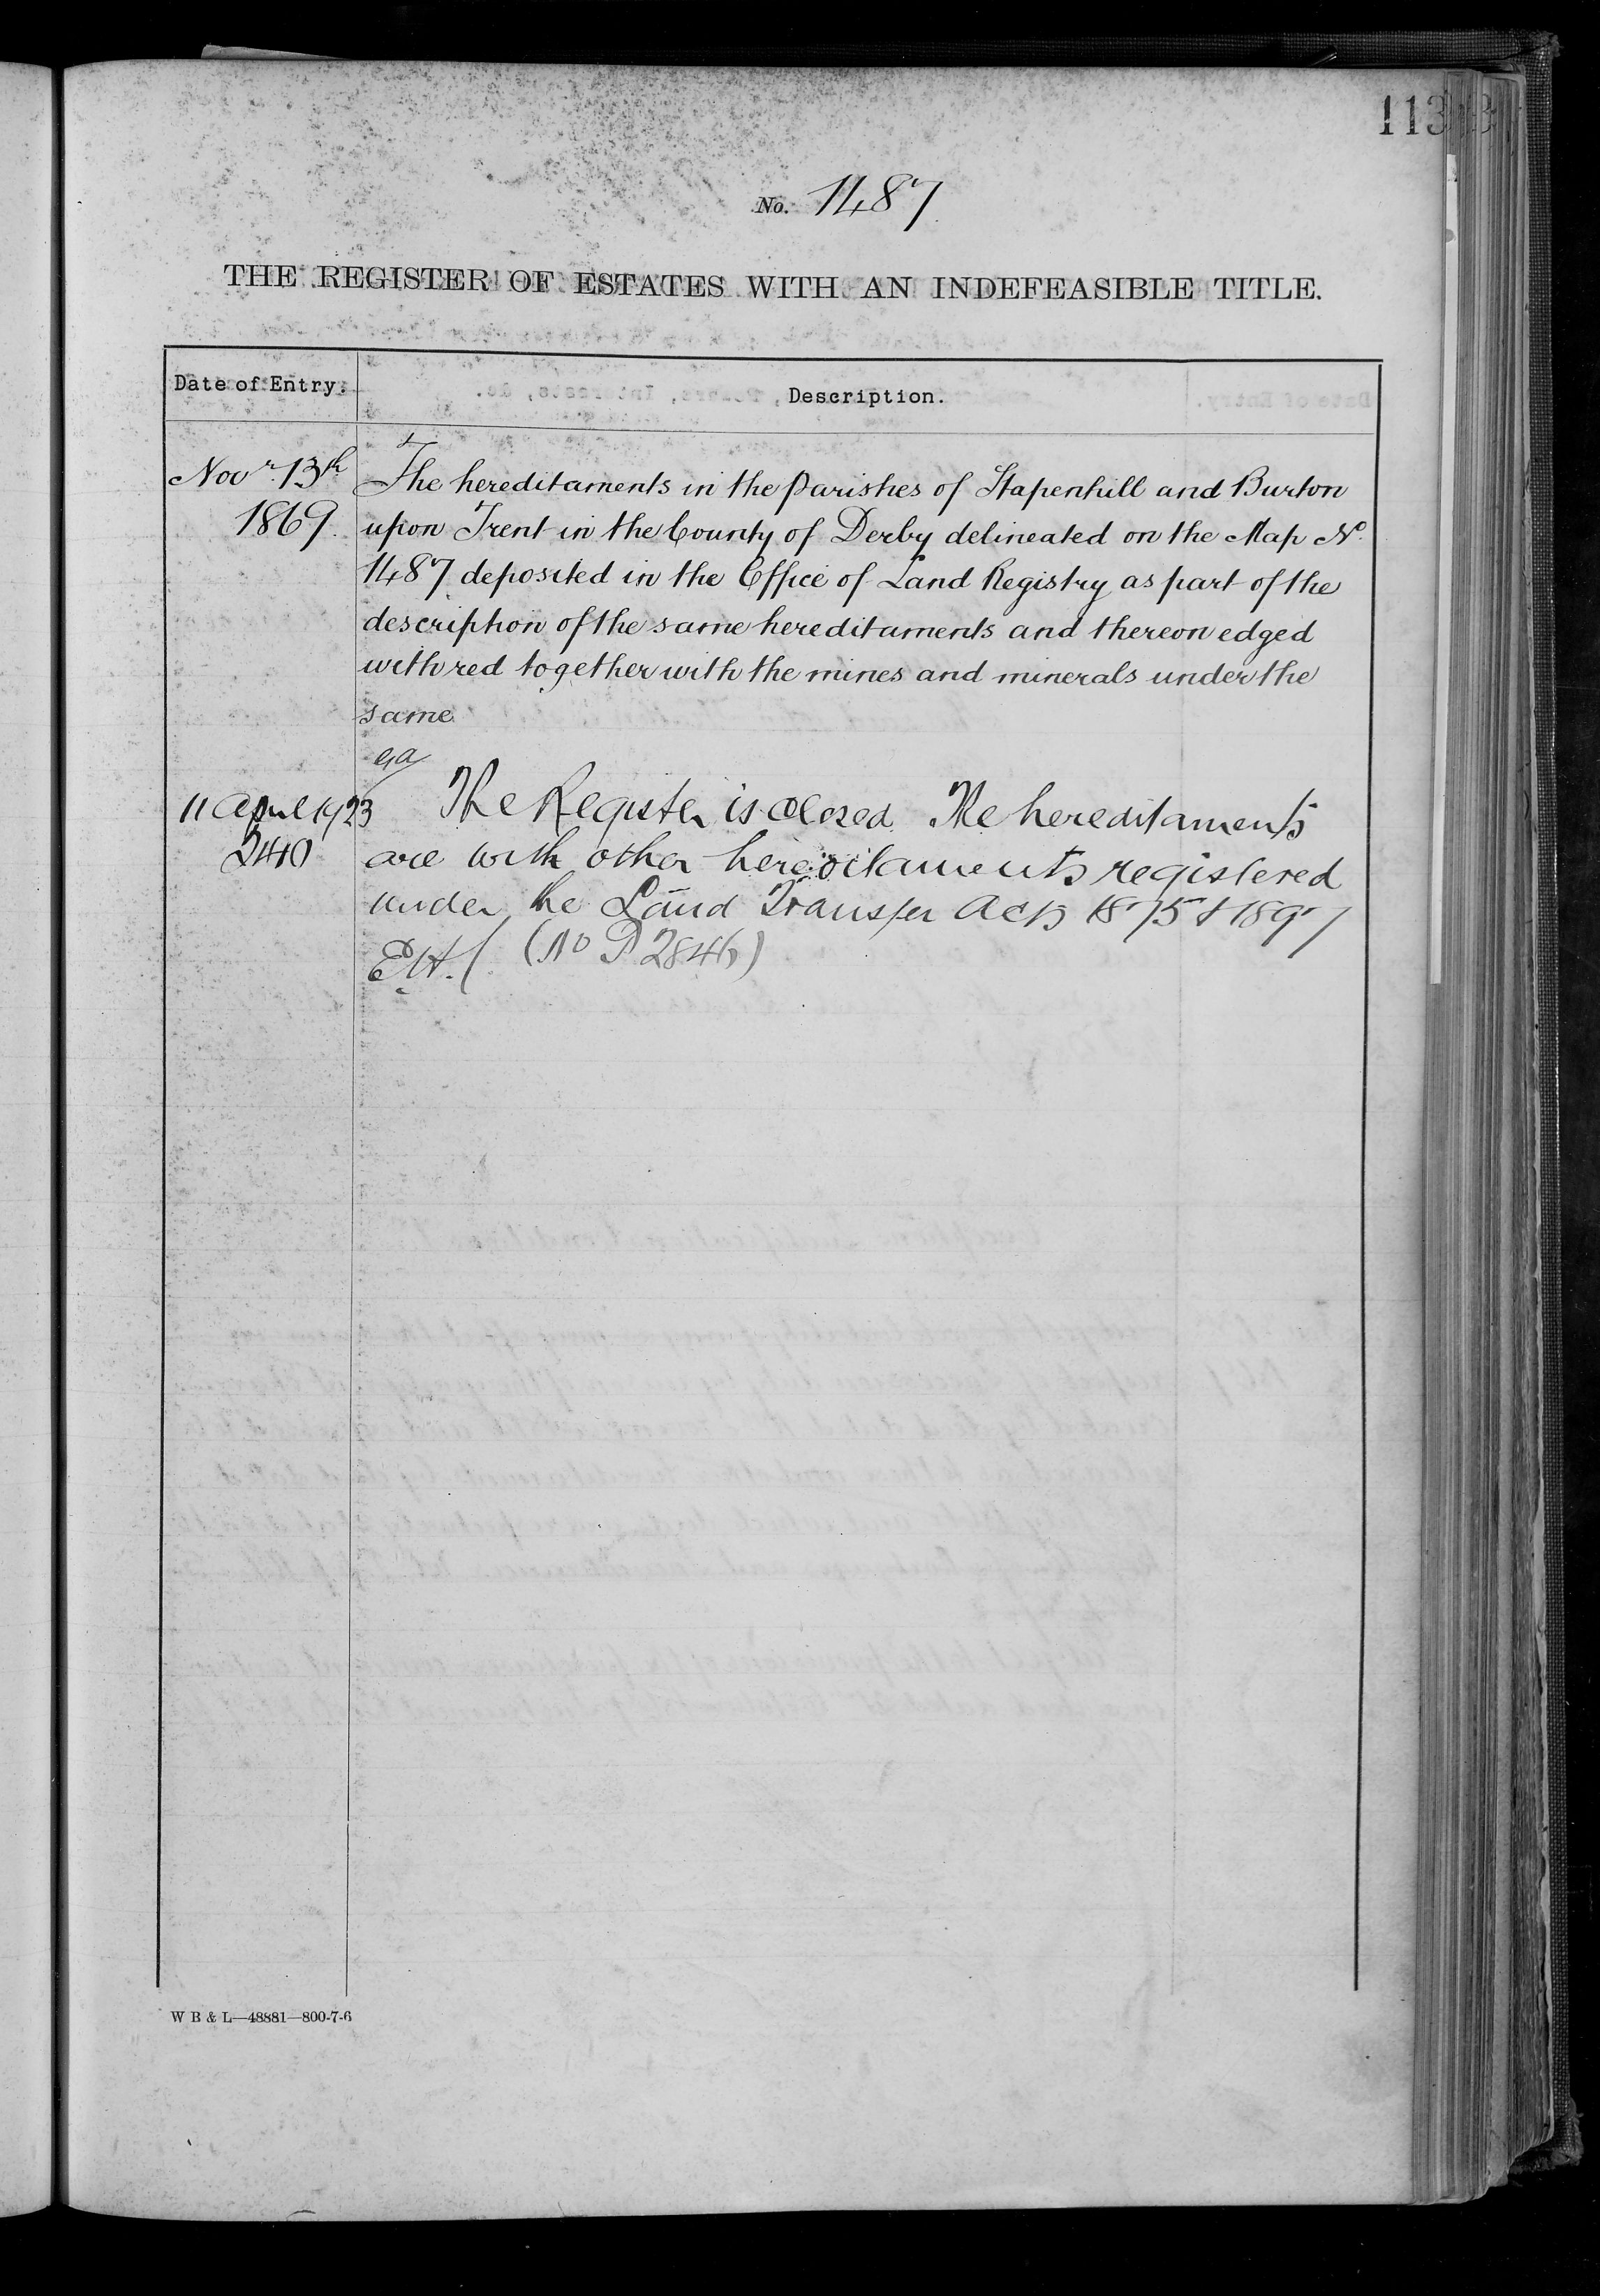 113
No. 1487
THE REGISTER OF ESTATES WITH AN INDEFEASIBLE TITLE.
Date of Entry. Description.
Novr. 13th The hereditaments in the Parishes of Stapenhill and Burton
1869. upon Trent in the County of Derby delineated on the Map No.
1487 deposited in the Office of Land Registry as part of the
description of the same hereditaments and thereon edged
with red together with the mines and minerals under the
same
11 April 1923 The Register is closed. The hereditaments
2410 are with other hereditaments registered
under the Land Transfer Acts 1875 & 1897
(No D 2846)
W B & L—48881—800-7-6